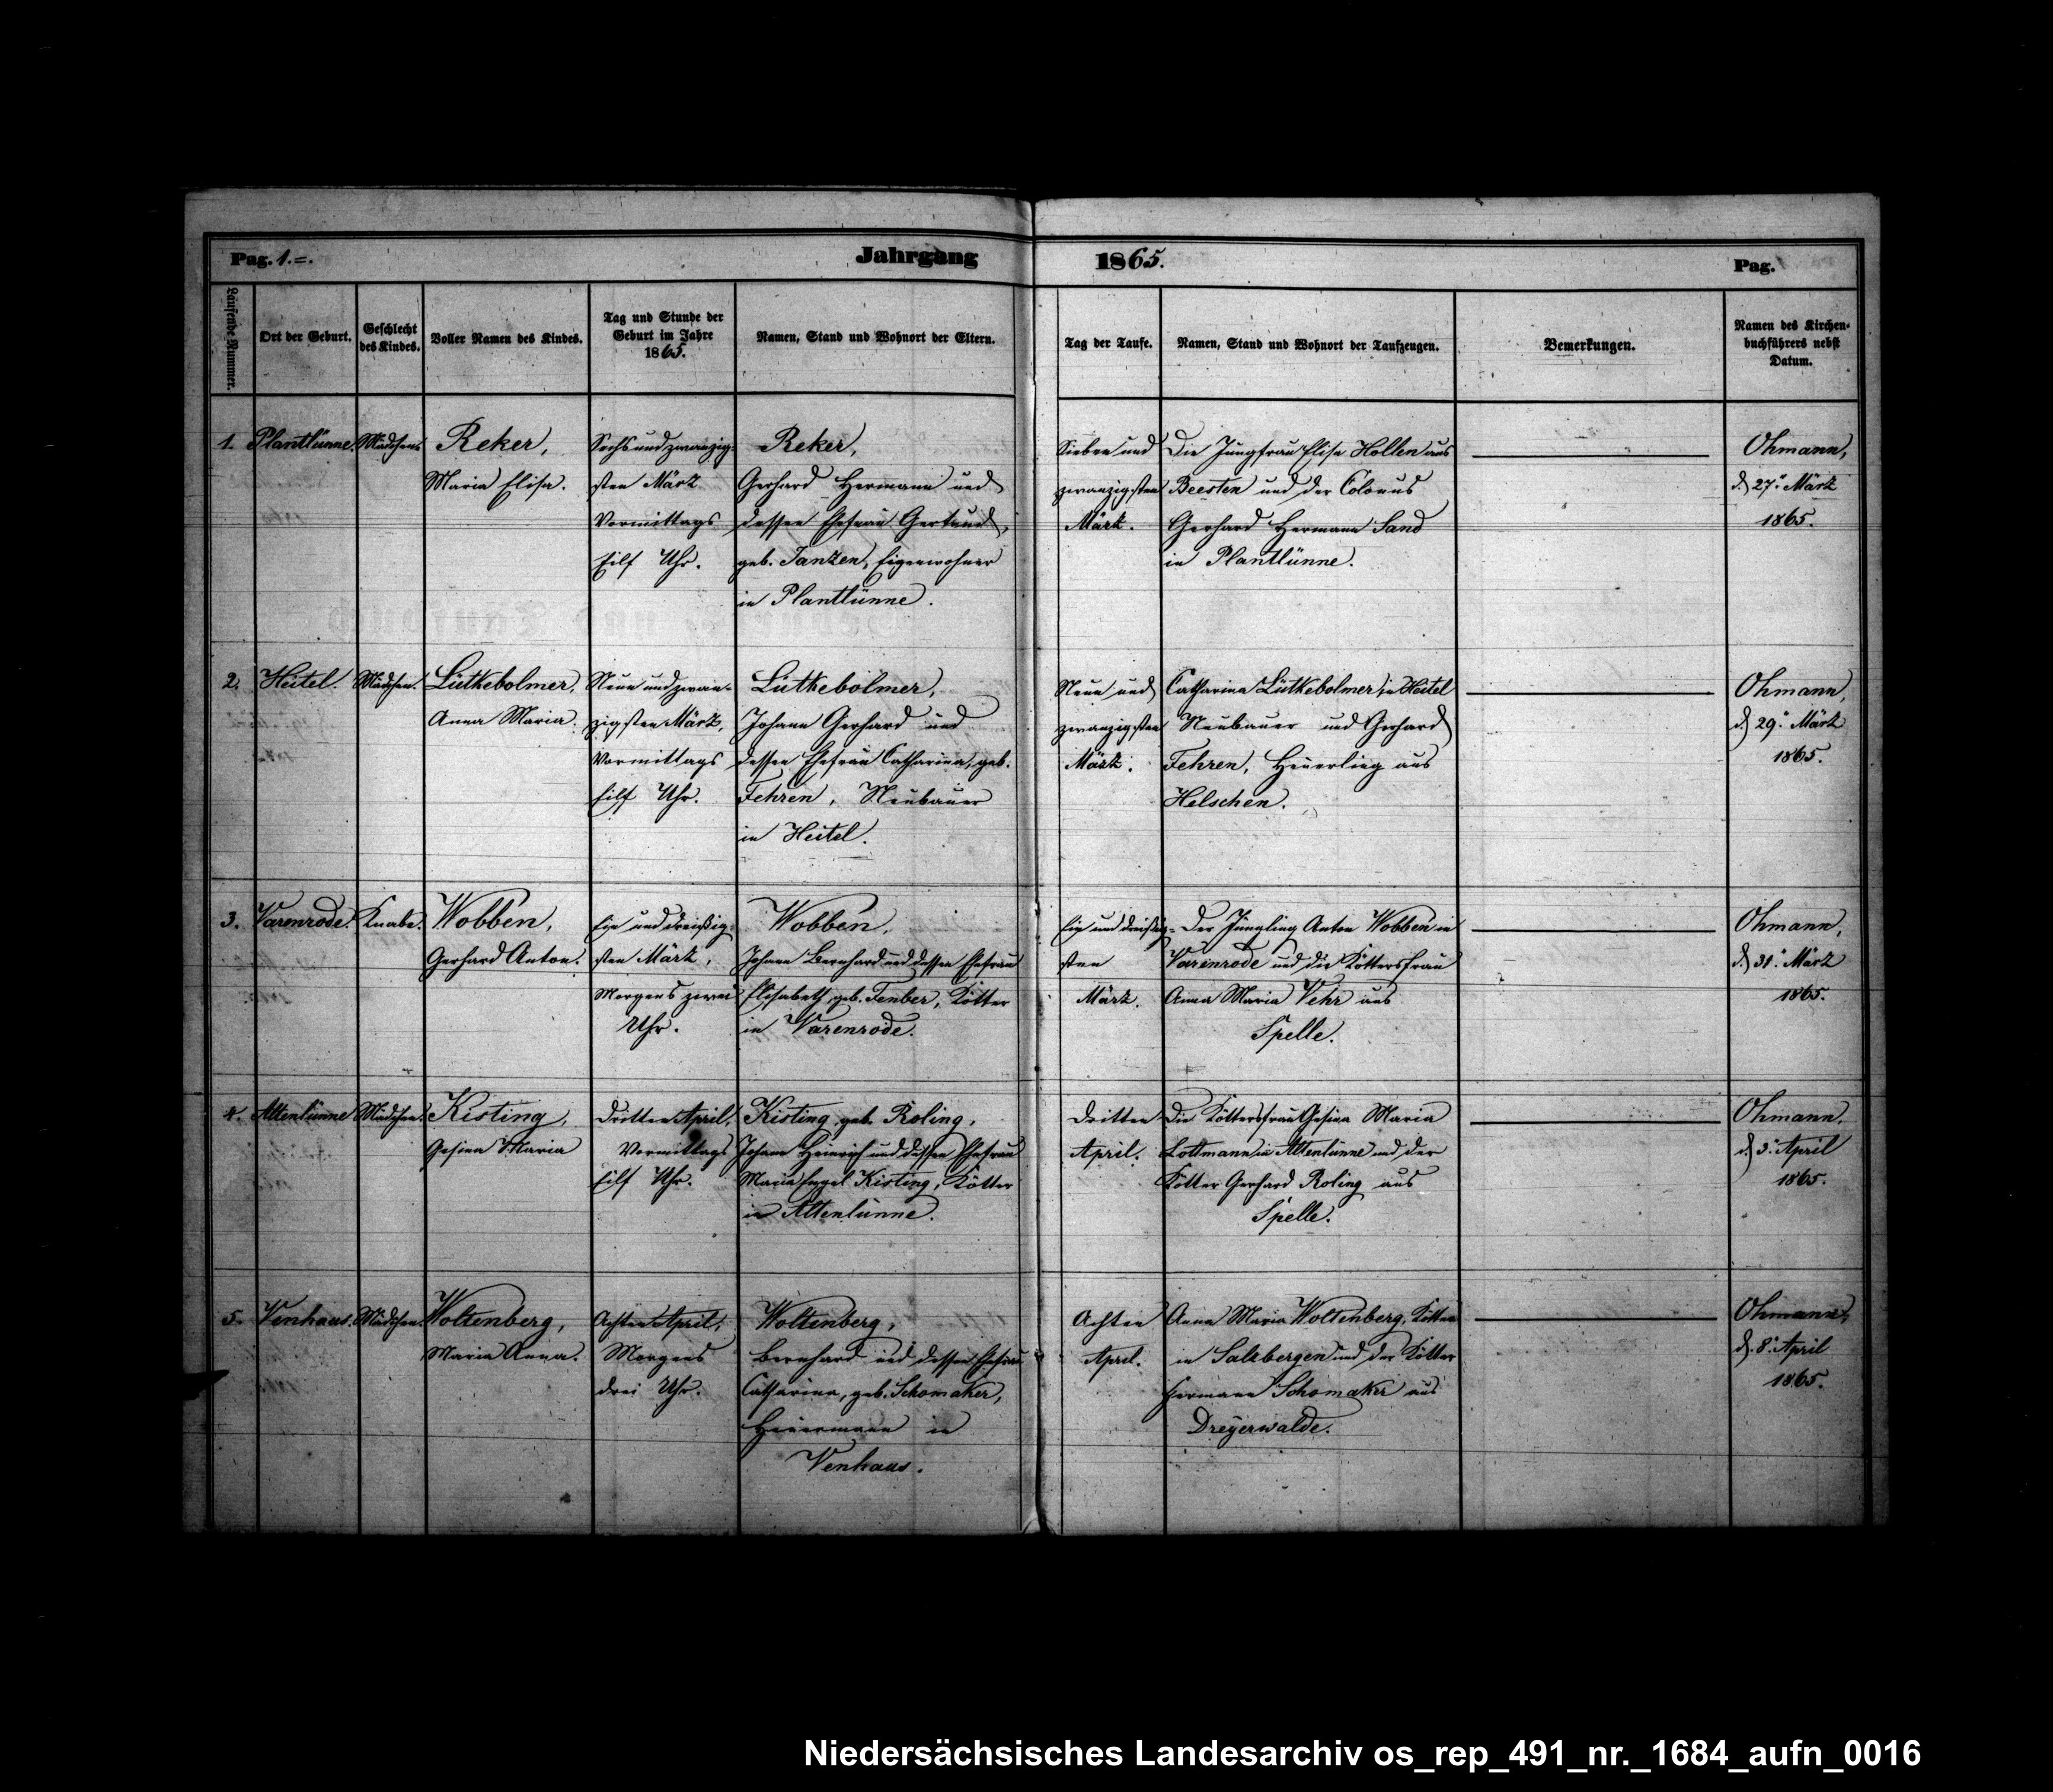 Pag. 1.=.
Jahrgang 1865.
Pag.
Laufende Nummer.
Ort der Geburt.
Geschlecht
des Kindes.
Voller Namen des Kindes.
Tag und Stunde der
Geburt im Jahre
1865.
Namen, Stand und Wohnort der Eltern.
Tag der Taufe.
Namen, Stand und Wohnort der Taufzeugen.
Bemerkungen.
Namen des Kirchen-
buchführers nebst
Datum.
1.
Plantlünne.
Mädchen.
Reker,
Maria Elisa.
Sechs und zwanzig-
sten März
Vormittags
Eilf Uhr.
Reker,
Gerhard Hermann und
dessen Ehefrau Gertrud,
geb. Janzen, Eigenwohner
in Plantlünne.
Sieben und
zwanzigsten
März.
Die Jungfrau Elisa Hollen aus
Beesten und der Colonus
Gerhard Hermann Sand
in Plantlünne.
Ohmann,
d. 27. März
1865.
2.
Heitel.
Mädchen.
Lütkebolmer,
Anna Maria.
Neun und zwan-
zigsten März,
Vormittags
Eilf Uhr.
Lütkebolmer,
Johann Gerhard und
dessen Ehefrau Catharina, geb.
Fehren, Neubauer
in Heitel.
Neun und
zwanzigsten
März.
Catharina Lütkebolmer in Heitel
Neubauer und Gerhard
Fehren, Heuerling aus
Helschen.
Ohmann,
d. 29. März
1865.
3.
Varenrode.
Knabe.
Wobben,
Gerhard Anton.
Ein und dreißig-
sten März,
Morgens zwei
Uhr.
Wobben,
Johann Bernhard und dessen Ehefrau
Elisabeth, geb. Fenber, Kötter
in Varenrode.
Ein und dreißig-
sten
März.
Der Jüngling Anton Wobben in
Varenrode und die Köttersfrau
Anna Maria Vehr aus
Spelle.
Ohmann,
d. 31. März
1865.
4.
Altenlünne
Mädchen.
Kisting,
Gesina Maria
Dritten April,
Vormittags
Eilf Uhr.
Kisting, geb. Roling,
Johann Heinrich und dessen Ehefrau
Maria Engel Kisting, Kötter
in Altenlünne.
Dritten
April.
Die Köttersfrau Gesina Maria
Lottmann in Altenlünne und der
Kötter Gerhard Roling aus
Spelle.
Ohmann,
d. 3. April
1865.
5.
Venhaus.
Mädchen.
Woltenberg,
Maria Anna.
Achten April,
Morgens
drei Uhr.
Woltenberg,
Bernhard und dessen Ehefrau
Catharina, geb. Schomaker,
Heuermann in
Venhaus.
Achten
April.
Anna Maria Woltenberg, Kötter
in Salzbergen und der Kötter
Hermann Schomaker aus
Dreyerwalde.
Ohmann,
d. 8. April
1865.
Niedersächsisches Landesarchiv os_rep_491_nr._1684_aufn_0016